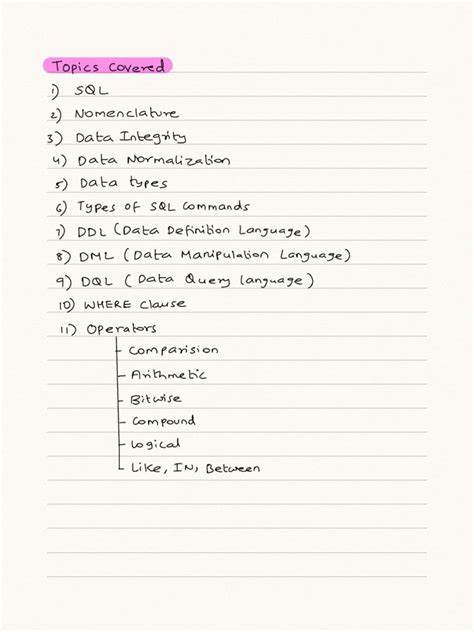 Topics Covered
1) SQL
2) Nomenclature
3) Data Integrity
4) Data Normalization
5) Data types
6) Types of SQL Commands
7) DDL (Data Definition Language)
8) DML (Data Manipulation Language)
9) DQL (Data Query language)
10) WHERE Clause
11) Operators
- Comparision
- Arithmetic
- Bitwise
- Compound
- Logical
- Like, IN, Between